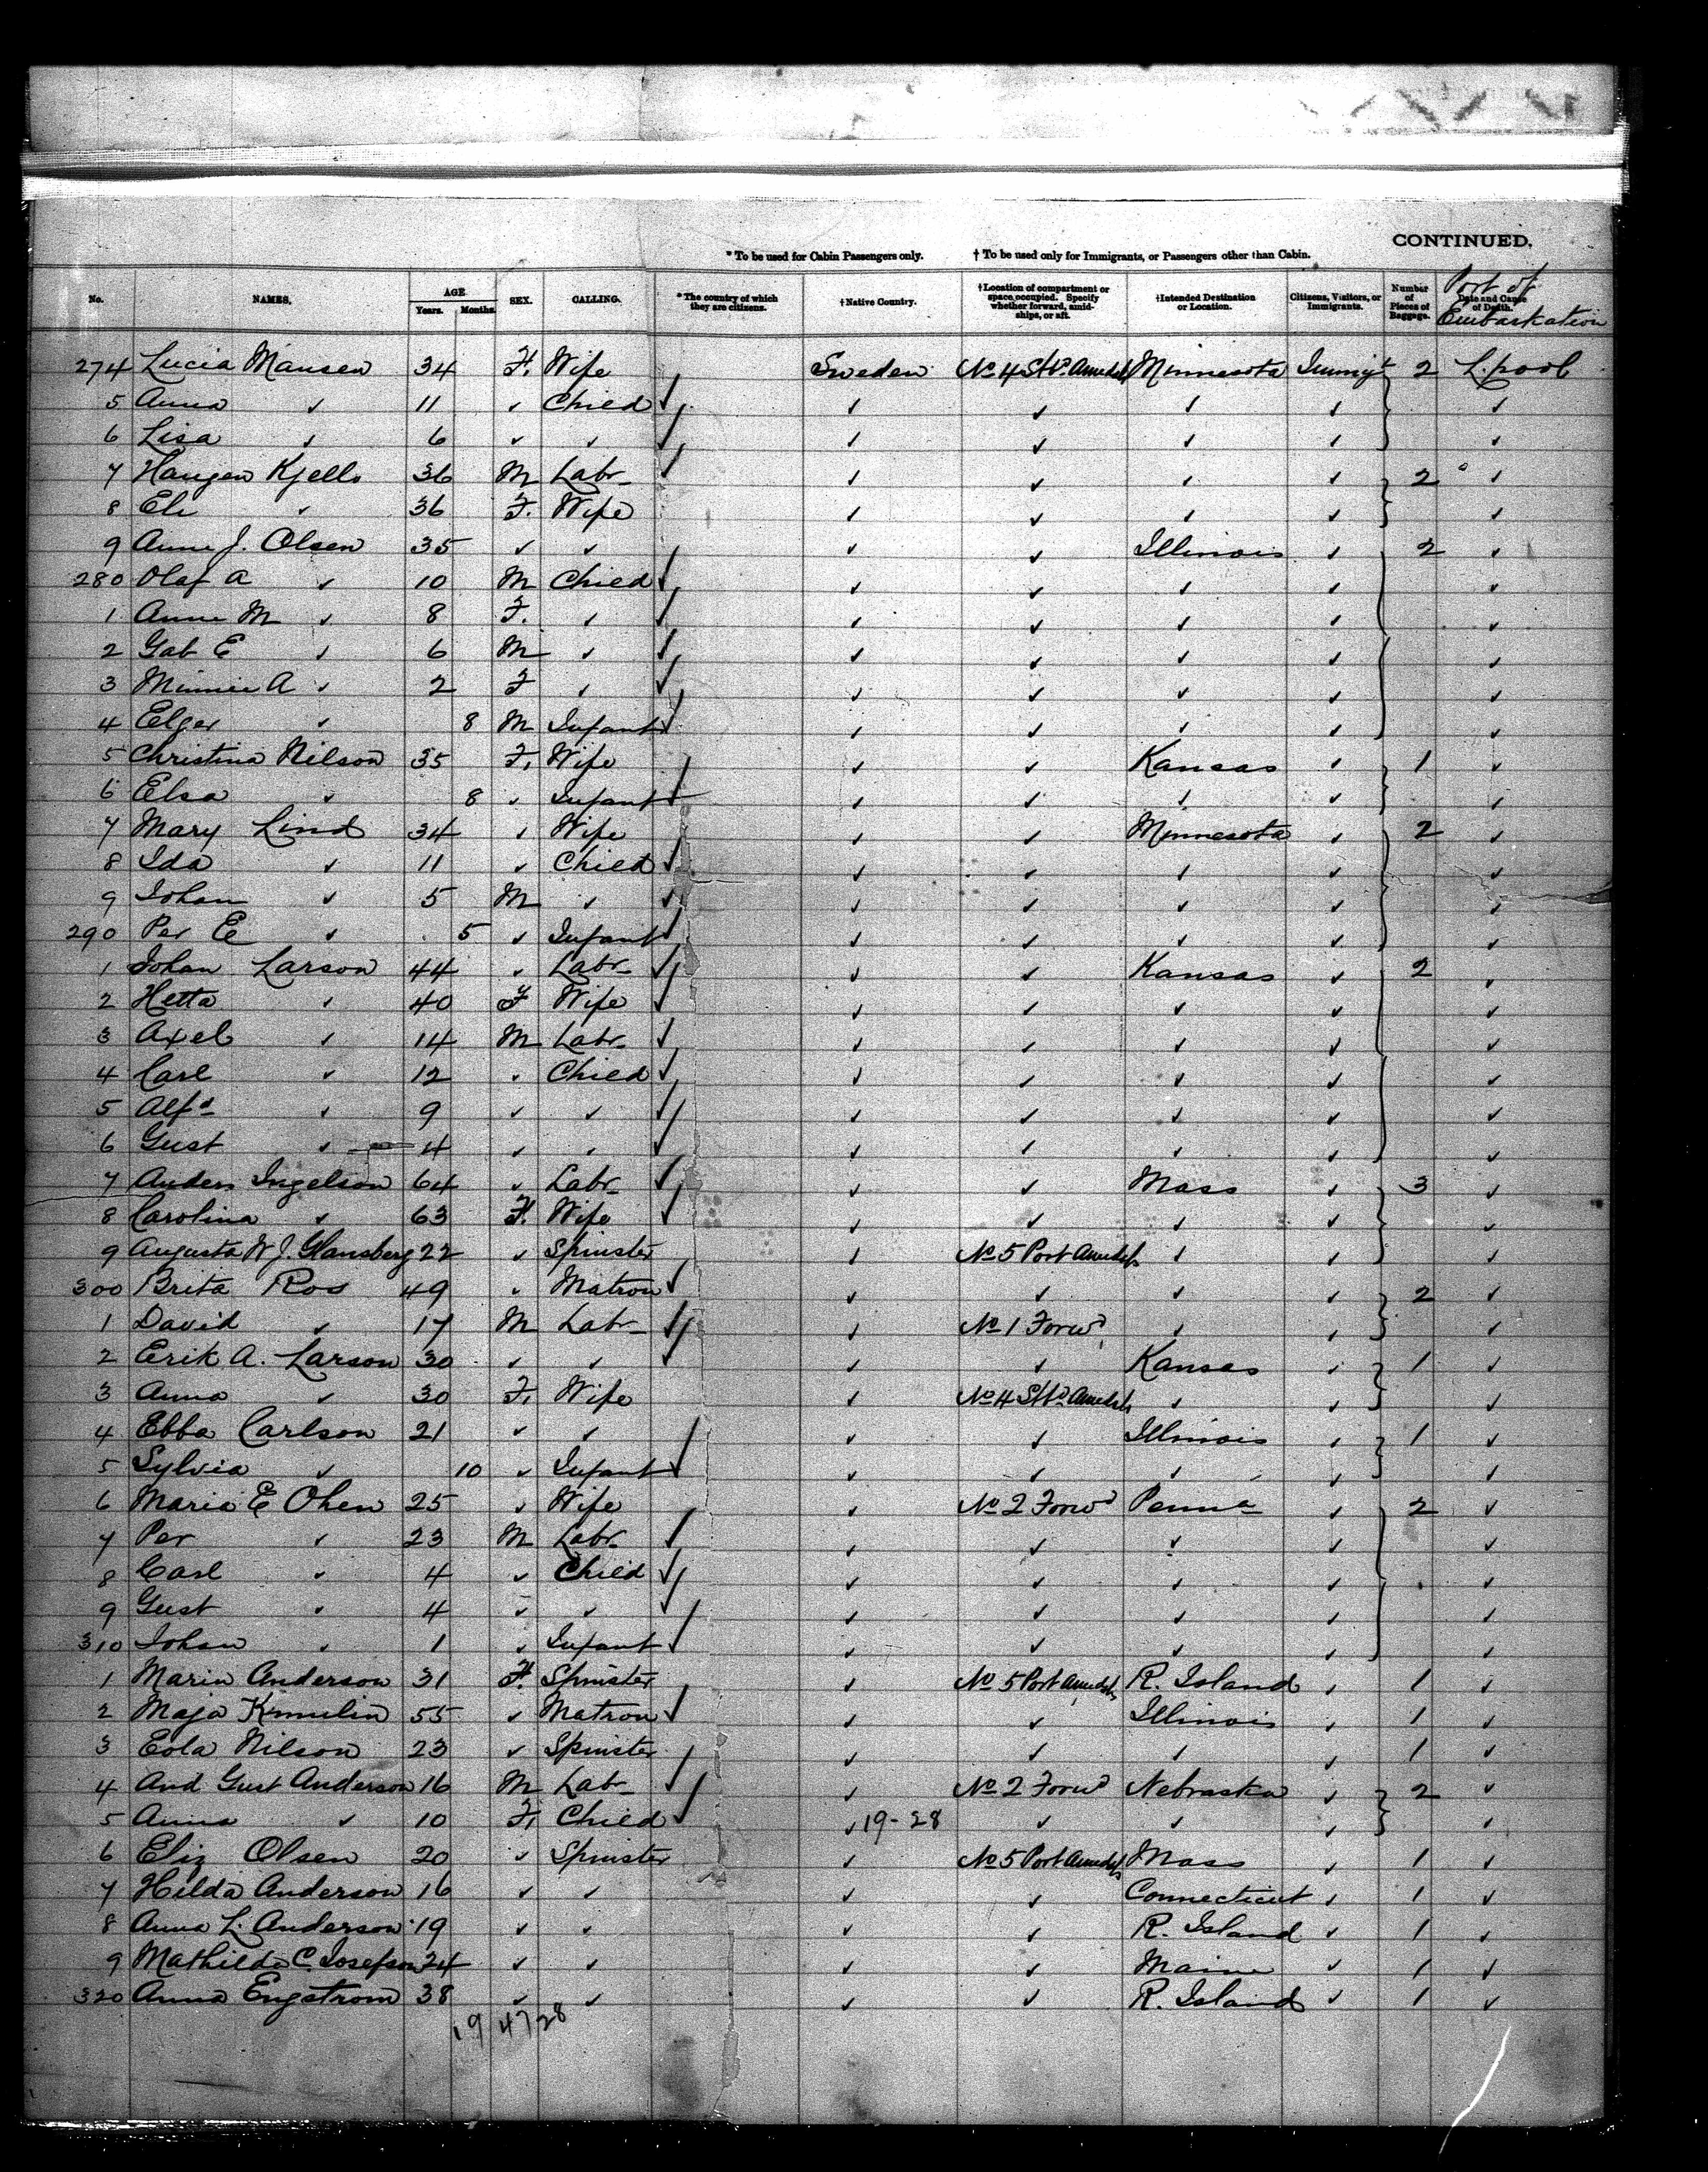 CONTINUED.
* To be used for Cabin Passengers only. † To be used only for Immigrants, or Passengers other than Cabin.
No. NAMES. AGE Years. Months. SEX. CALLING. * The country of which they are citizens. † Native Country. † Location of compartment or space occupied. Specify whether forward, amidships, or aft. † Intended Destination or Location. Citizens, Visitors, or Immigrants. Number of Pieces of Baggage. Date and Cause of Death. Port of Embarkation
274 Lucia Mansen 34 F. Wife Sweden No 4 Stbd Amidsh Minnesota Immigt 2 L.pool
5 Anna ✓ 11 ✓ Child ✓ ✓ ✓ ✓ ✓ ✓
6 Lisa ✓ 6 ✓ ✓ ✓ ✓ ✓ ✓ ✓ ✓
7 Haugen Kjells 36 M Labr ✓ ✓ ✓ ✓ ✓ 2 ✓
8 Eli ✓ 36 F. Wife ✓ ✓ ✓ ✓ ✓
9 Anne J. Olsen 35 ✓ ✓ ✓ ✓ Illinois ✓ 2 ✓
280 Olaf A ✓ 10 M Child ✓ ✓ ✓ ✓ ✓ ✓
1 Anne M ✓ 8 F. ✓ ✓ ✓ ✓ ✓ ✓ ✓
2 Gab E ✓ 6 M ✓ ✓ ✓ ✓ ✓ ✓ ✓
3 Minnie A ✓ 2 F ✓ ✓ ✓ ✓ ✓ ✓ ✓
4 Elger ✓ 8 M Infant ✓ ✓ ✓ ✓ ✓ ✓
5 Christina Nilson 35 F. Wife ✓ ✓ Kansas ✓ 1 ✓
6 Elsa ✓ 8 ✓ Infant ✓ ✓ ✓ ✓ ✓ ✓
7 Mary Lind 34 ✓ Wife ✓ ✓ Minnesota ✓ 2 ✓
8 Ida ✓ 11 ✓ Child ✓ ✓ ✓ ✓ ✓ ✓
9 Johan ✓ 5 M ✓ ✓ ✓ ✓ ✓ ✓ ✓
290 Per E ✓ 5 ✓ Infant ✓ ✓ ✓ ✓ ✓ ✓
1 Johan Larson 44 ✓ Labr ✓ ✓ ✓ Kansas ✓ 2 ✓
2 Hetta ✓ 40 F Wife ✓ ✓ ✓ ✓ ✓ ✓
3 Axel ✓ 14 M Labr ✓ ✓ ✓ ✓ ✓ ✓
4 Carl ✓ 12 ✓ Child ✓ ✓ ✓ ✓ ✓ ✓
5 Alfd ✓ 9 ✓ ✓ ✓ ✓ ✓ ✓ ✓ ✓
6 Gust ✓ 4 ✓ ✓ ✓ ✓ ✓ ✓ ✓ ✓
7 Anders Ingelson 64 ✓ Labr ✓ ✓ ✓ Mass ✓ 3 ✓
8 Carolina ✓ 63 F. Wife ✓ ✓ ✓ ✓ ✓ ✓
9 Augusta W J. Glansberg 22 ✓ Spinster ✓ No 5 Port Amidsh ✓ ✓ ✓
300 Brita Ros 49 ✓ Matron ✓ ✓ ✓ ✓ ✓ 2 ✓
1 David ✓ 17 M Labr ✓ ✓ No 1 Forwd ✓ ✓ ✓
2 Erik A. Larson 30 ✓ ✓ ✓ ✓ ✓ Kansas ✓ 1 ✓
3 Anna ✓ 30 F. Wife ✓ No 4 Stbd Amidsh ✓ ✓ ✓
4 Ebba Carlson 21 ✓ ✓ ✓ ✓ Illinois ✓ 1 ✓
5 Sylvia ✓ 10 ✓ Infant ✓ ✓ ✓ ✓ ✓ ✓
6 Maria E Ohen 25 ✓ Wife ✓ No 2 Forwd Penna ✓ 2 ✓
7 Per ✓ 23 M Labr ✓ ✓ ✓ ✓ ✓ ✓
8 Carl ✓ 4 ✓ Child ✓ ✓ ✓ ✓ ✓ ✓
9 Gust ✓ 4 ✓ ✓ ✓ ✓ ✓ ✓ ✓ ✓
310 Johan ✓ 1 ✓ Infant ✓ ✓ ✓ ✓ ✓ ✓
1 Maria Anderson 31 F. Spinster ✓ No 5 Port Amidsh R. Island ✓ 1 ✓
2 Maja Kmulin 55 ✓ Matron ✓ ✓ ✓ Illinois ✓ 1 ✓
3 Eola Nilson 23 ✓ Spinster ✓ ✓ ✓ ✓ 1 ✓
4 And Gust Anderson 16 M Labr ✓ ✓ No 2 Forwd Nebraska ✓ 2 ✓
5 Anna ✓ 10 F. Child ✓ ✓ 19-28 ✓ ✓ ✓ ✓
6 Eliz Olsen 20 ✓ Spinster ✓ No 5 Port Amidsh Mass ✓ 1 ✓
7 Hilda Anderson 16 ✓ ✓ ✓ ✓ Connecticut ✓ 1 ✓
8 Anna L. Anderson 19 ✓ ✓ ✓ ✓ R. Island ✓ 1 ✓
9 Mathilda C. Josefson 24 ✓ ✓ ✓ ✓ Maine ✓ 1 ✓
320 Anna Engstrom 38 ✓ ✓ ✓ ✓ R. Island ✓ 1 ✓
19/47 28